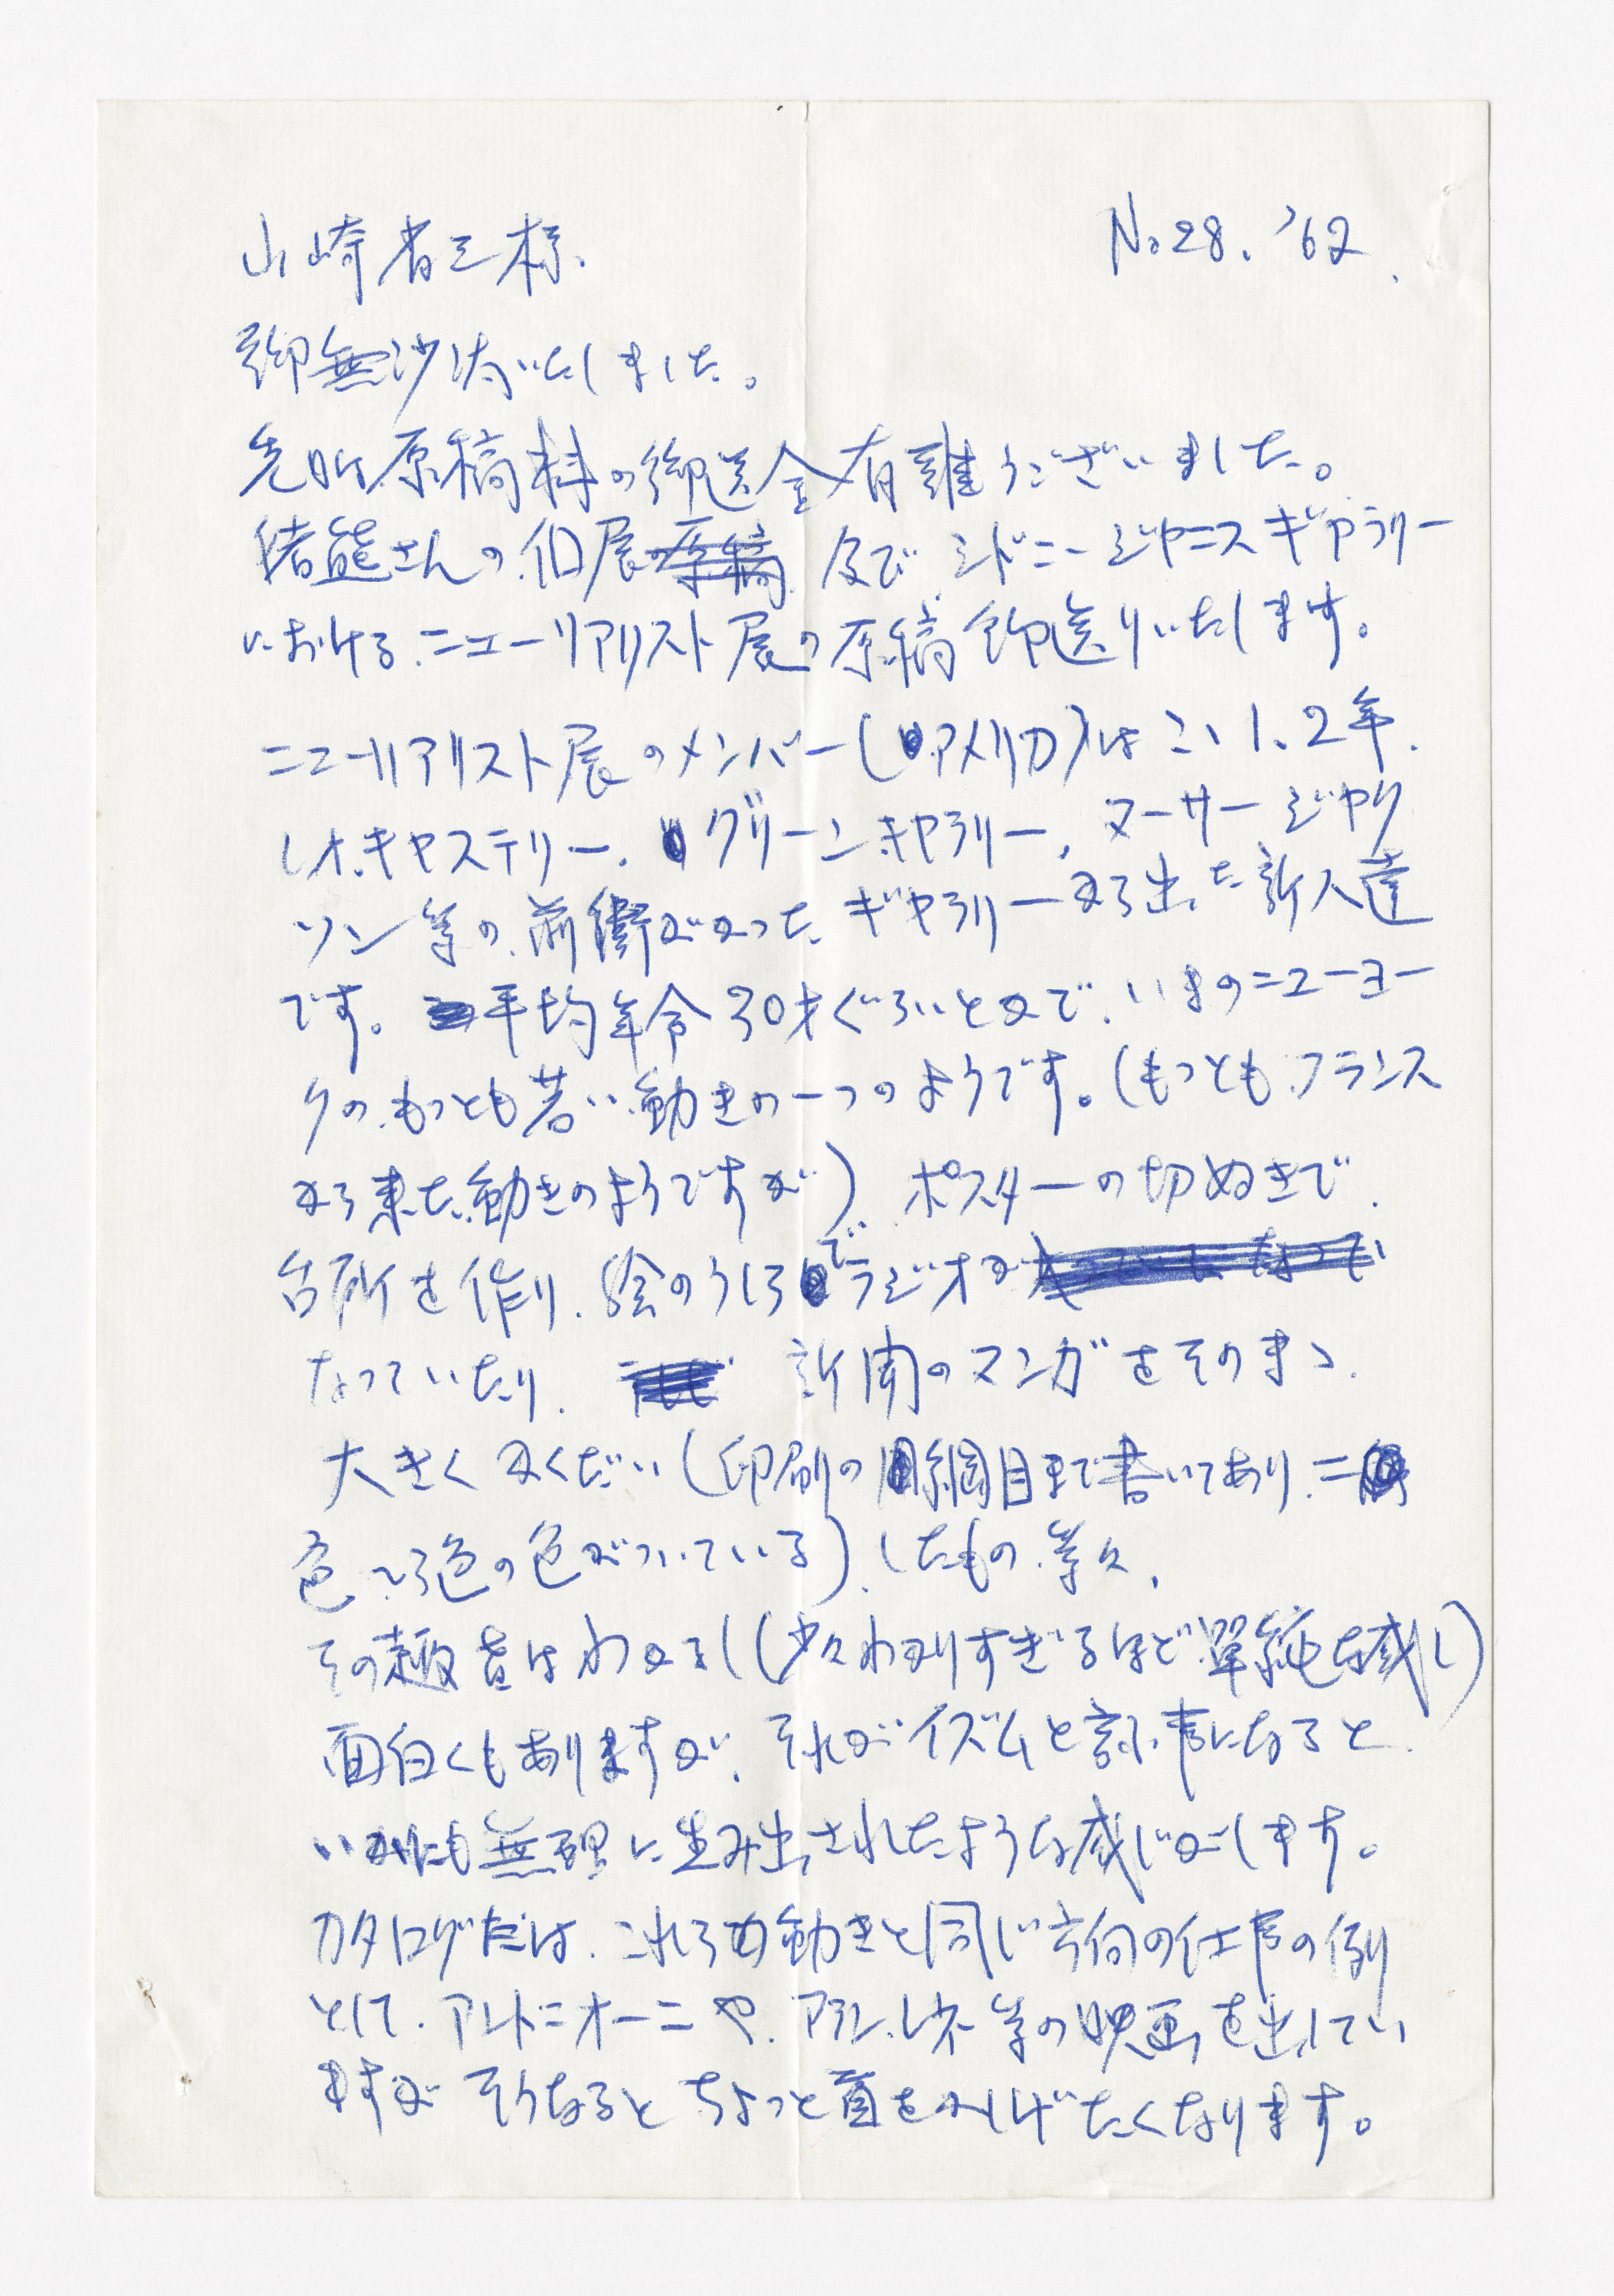 山崎省三様.
No 28. '62.
御無沙汰いたしました。
先日は原稿料の御送金有難うございました。
猪熊さんの個展原稿 及び シドニー ジャニス ギャラリー
におけるニューリアリスト展の原稿御送りいたします。
ニューリアリスト展のメンバー(アメリカ)はこゝ1、2年.
レオ.キャステリー. グリーンギャラリー, マーサー ジャク
ソン等の前衛がかったギャラリーから出た新人達
です。 平均年令30才ぐらいとかで、いまのニューヨー
クのもっとも若い動きの一つのようです。(もっともフランス
から来た動きのようですが) ポスターの切ぬきで
台所を作り. 絵のうしろでラジオが
なっていたり. 新聞のマンガをそのまゝ
大きくかくだい(印刷の網目まで書いてあり. 二
色、3色の色がついている)したもの等々.
その趣旨はわかるし(少々わかりすぎるほど単純な感じ)
面白くもありますが、それがイズムと言ふ事になると
いかにも無理に生み出されたような感じがします。
カタログでは、これらの動きと同じ方向の仕事の例
として. アントニオーニや. アラン.レネ等の映画を出してい
ますが そうなると ちょっと首をかしげたくなります。